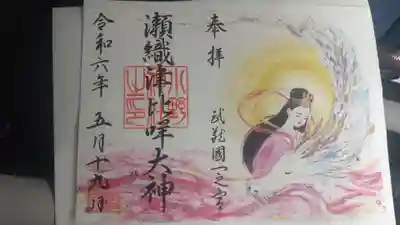 奉拝
武蔵國一之宮
瀬織津比咩大神
小野
之印
令和六年 五月十九日